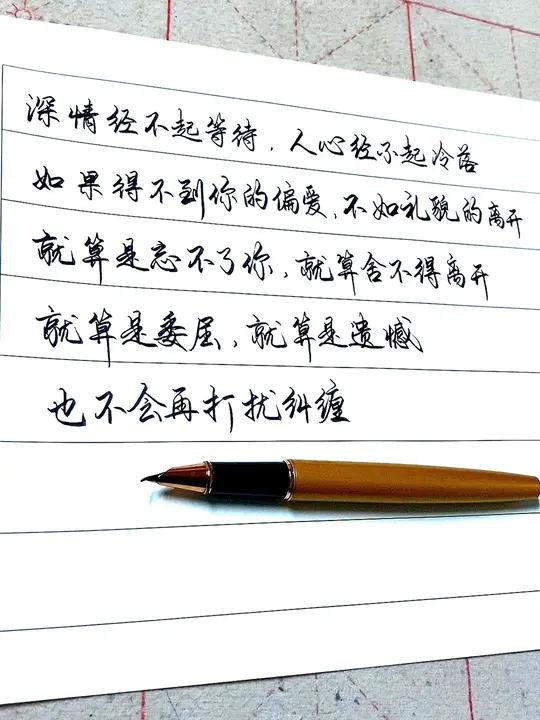 深情经不起等待，人心经不起冷落
如果得不到你的偏爱，不如礼貌的离开
就算是忘不了你，就算舍不得离开
就算是委屈，就算是遗憾
也不会再打扰纠缠